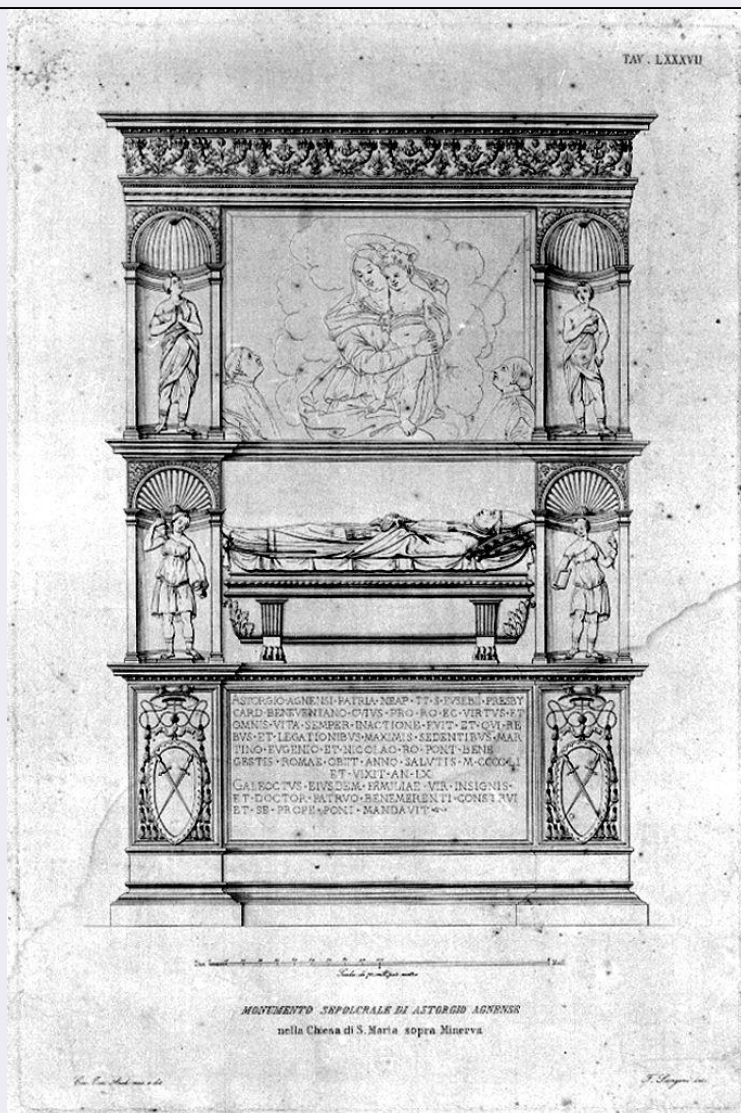 TAV. LXXXVII
ASTORGIO·AGNENSI·PATRIA·NEAP·TT·S·EVSEBII·PRESBY
CARD·BENEVENTANO·CVIVS·PRO·RO·EC·VIRTVS·ET
OMNIS·VITA·SEMPER·INACTIONE·FVIT·ET·QVI·RE
BVS·ET·LEGATIONIBVS·MAXIMIS·SEDENTIBVS·MAR
TINO·EVGENIO·ET·NICOLAO·RO·PONT·BENE
GESTIS·ROMAE·OBIIT·ANNO·SALVTIS·M·CCCC·LI
ET·VIXIT·AN·LX
GALEOCTVS·EIVSDEM·FAMILIAE·VIR·INSIGNIS·
ET·DOCTOR·PATRVO·BENEMERENTI·CONSTRVI
ET·SE·PROPE·PONI·MANDAVIT
MONUMENTO SEPOLCRALE DI ASTORGIO AGNENSE
nella Chiesa di S. Maria sopra Minerva